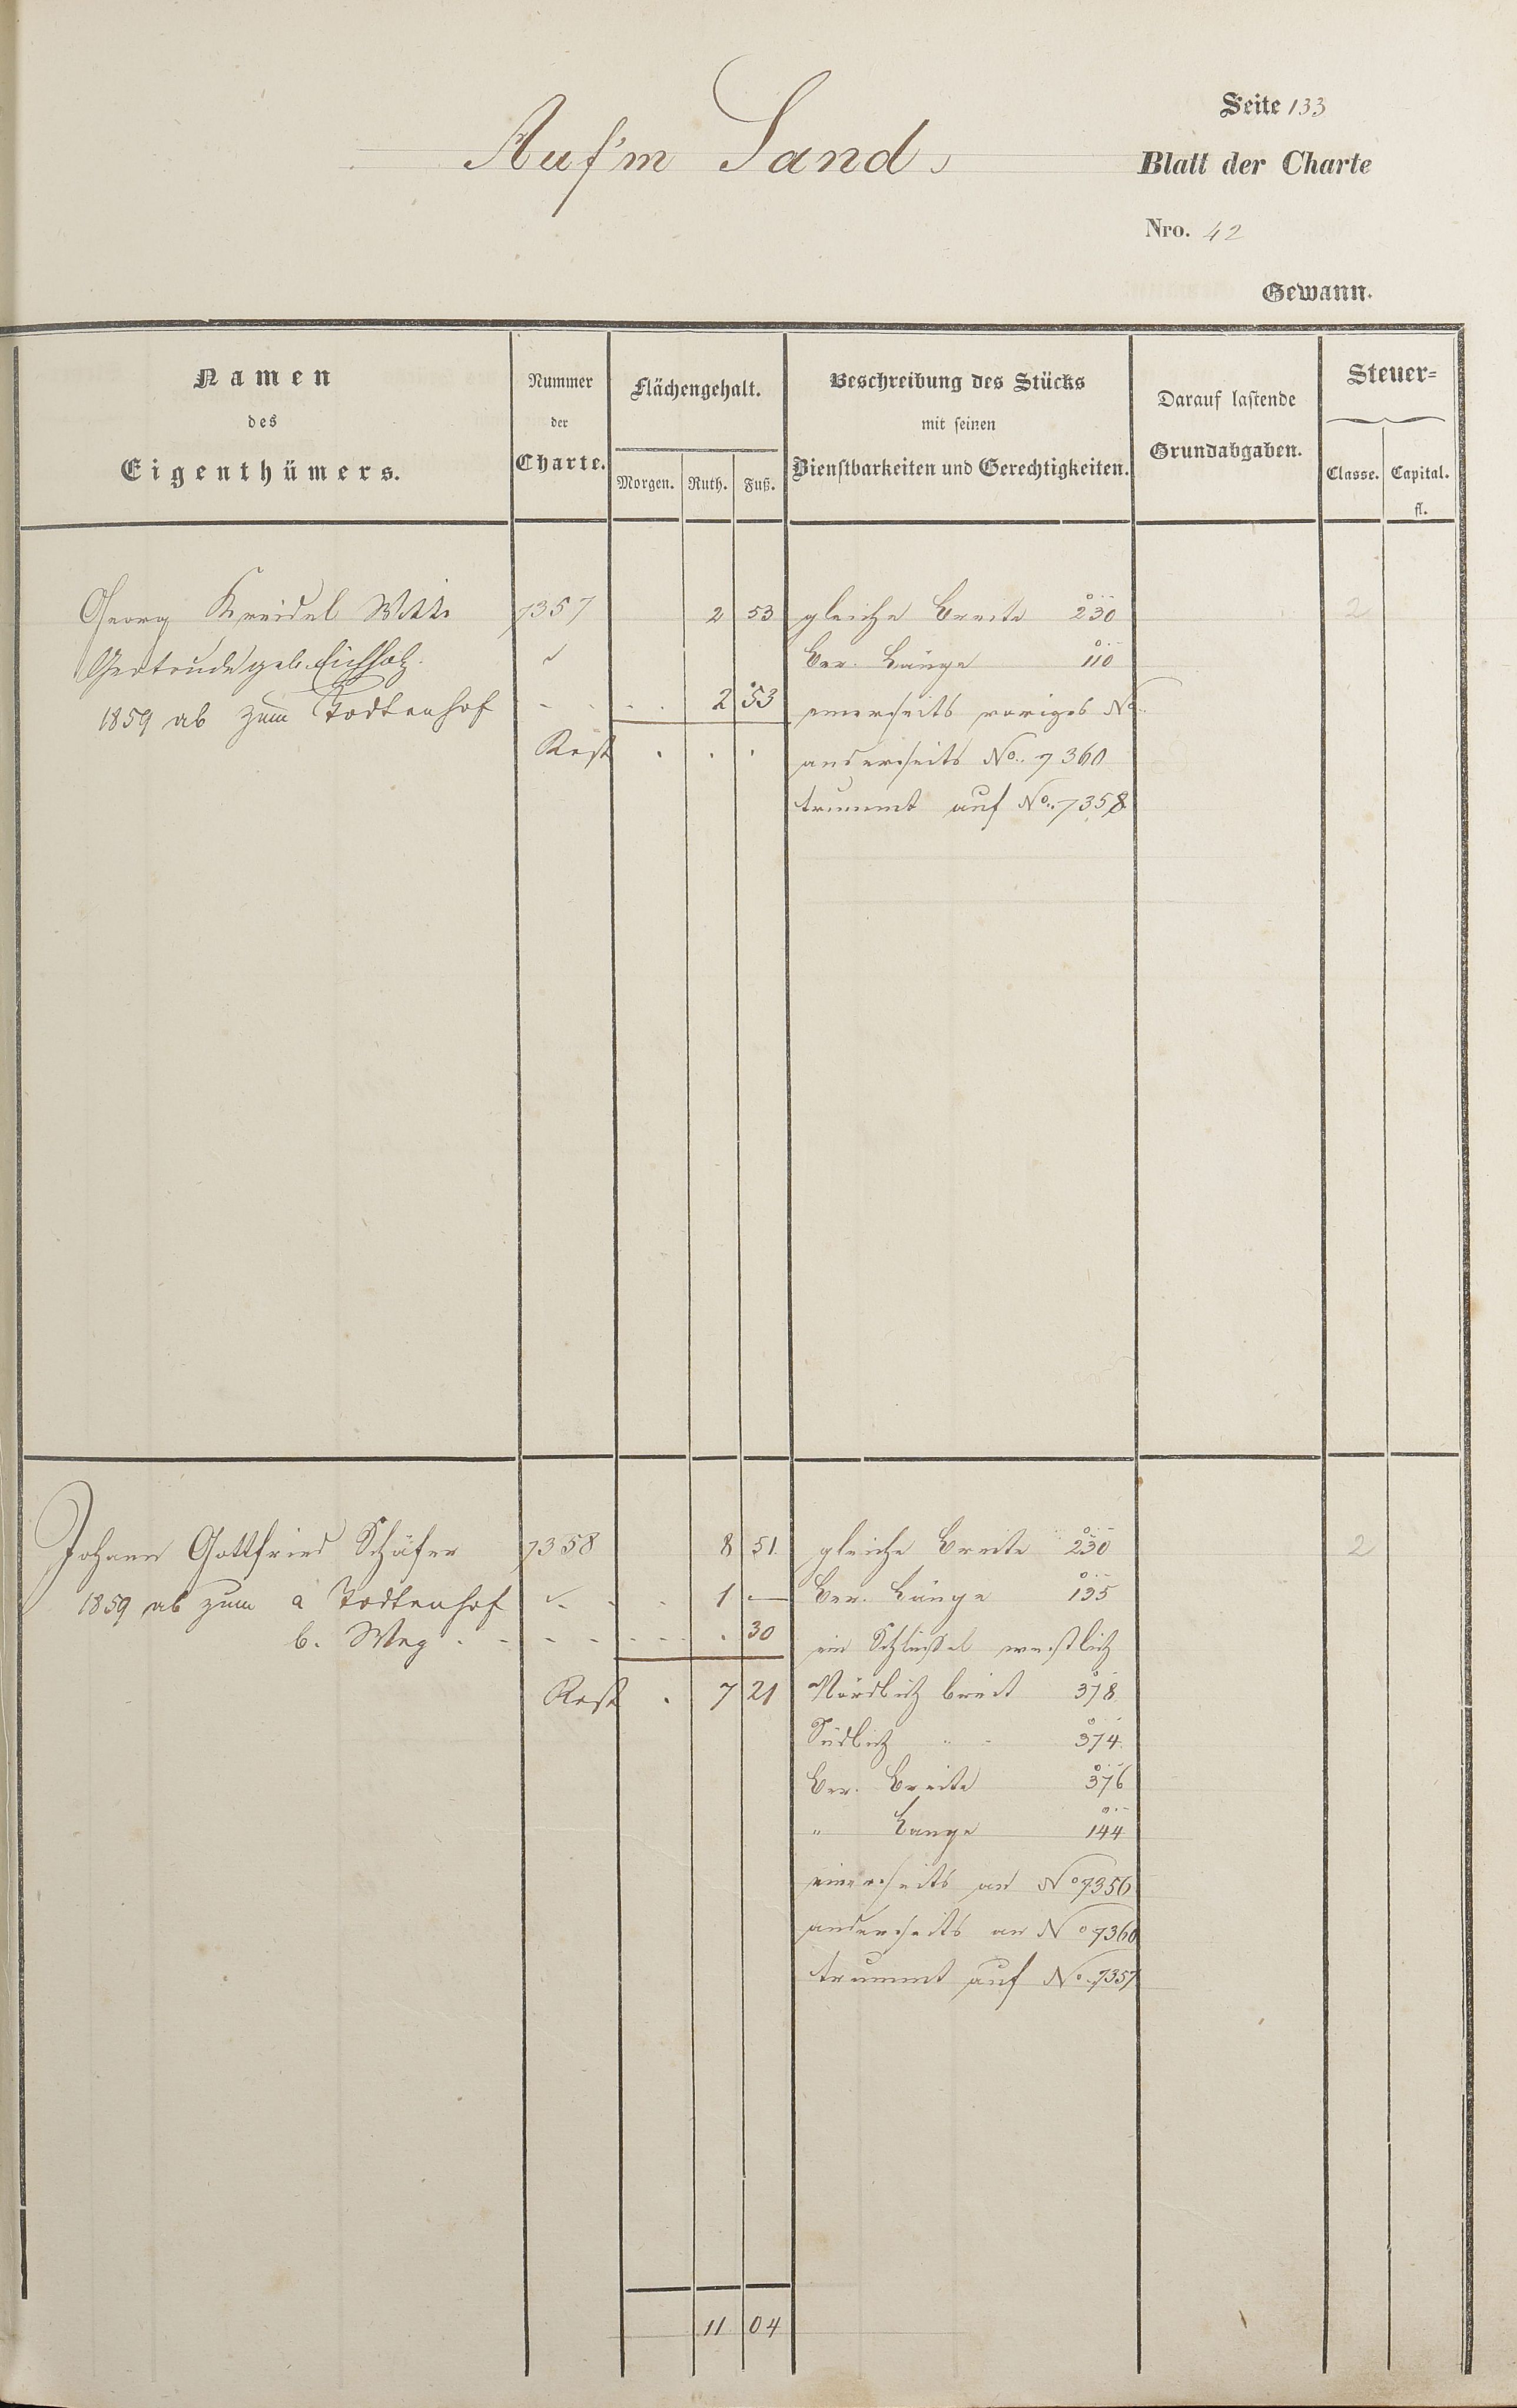 Seite 133
Auf'm Sand
Blatt der Charte
Nro. 42
Gewann.
Namen
des
Eigenthümers.
Nummer
der
Charte.
Flächengehalt.
Morgen. Ruth. Fuß.
Beschreibung des Stücks
mit seinen
Dienstbarkeiten und Gerechtigkeiten.
Darauf lastende
Grundabgaben.
Steuer=
Classe. Capital.
fl.
Georg Kreidel Witt. 7357 2 53 gleiche Breite 230 2
Gertrude geb. Eichholz. Ber. Länge 110
1859 ab zum Todtenhof 2 53 einerseits voriges No
Rest anderseits No. 7360
trummt auf No. 7358
Johann Gottfried Schäfer 7358 8 51 gleiche Breite 230 2
1859 ab zum a Todtenhof 1 — Ber. Länge 135
b. Weg 30 ein Schlüssel westlich
Rest 7 21 Nördlich breit 378
Südlich " 374
Ber. Breite 376
" Länge 144
einerseits an No 7356
anderseits an No 7360
trummt auf No. 7357
11 04